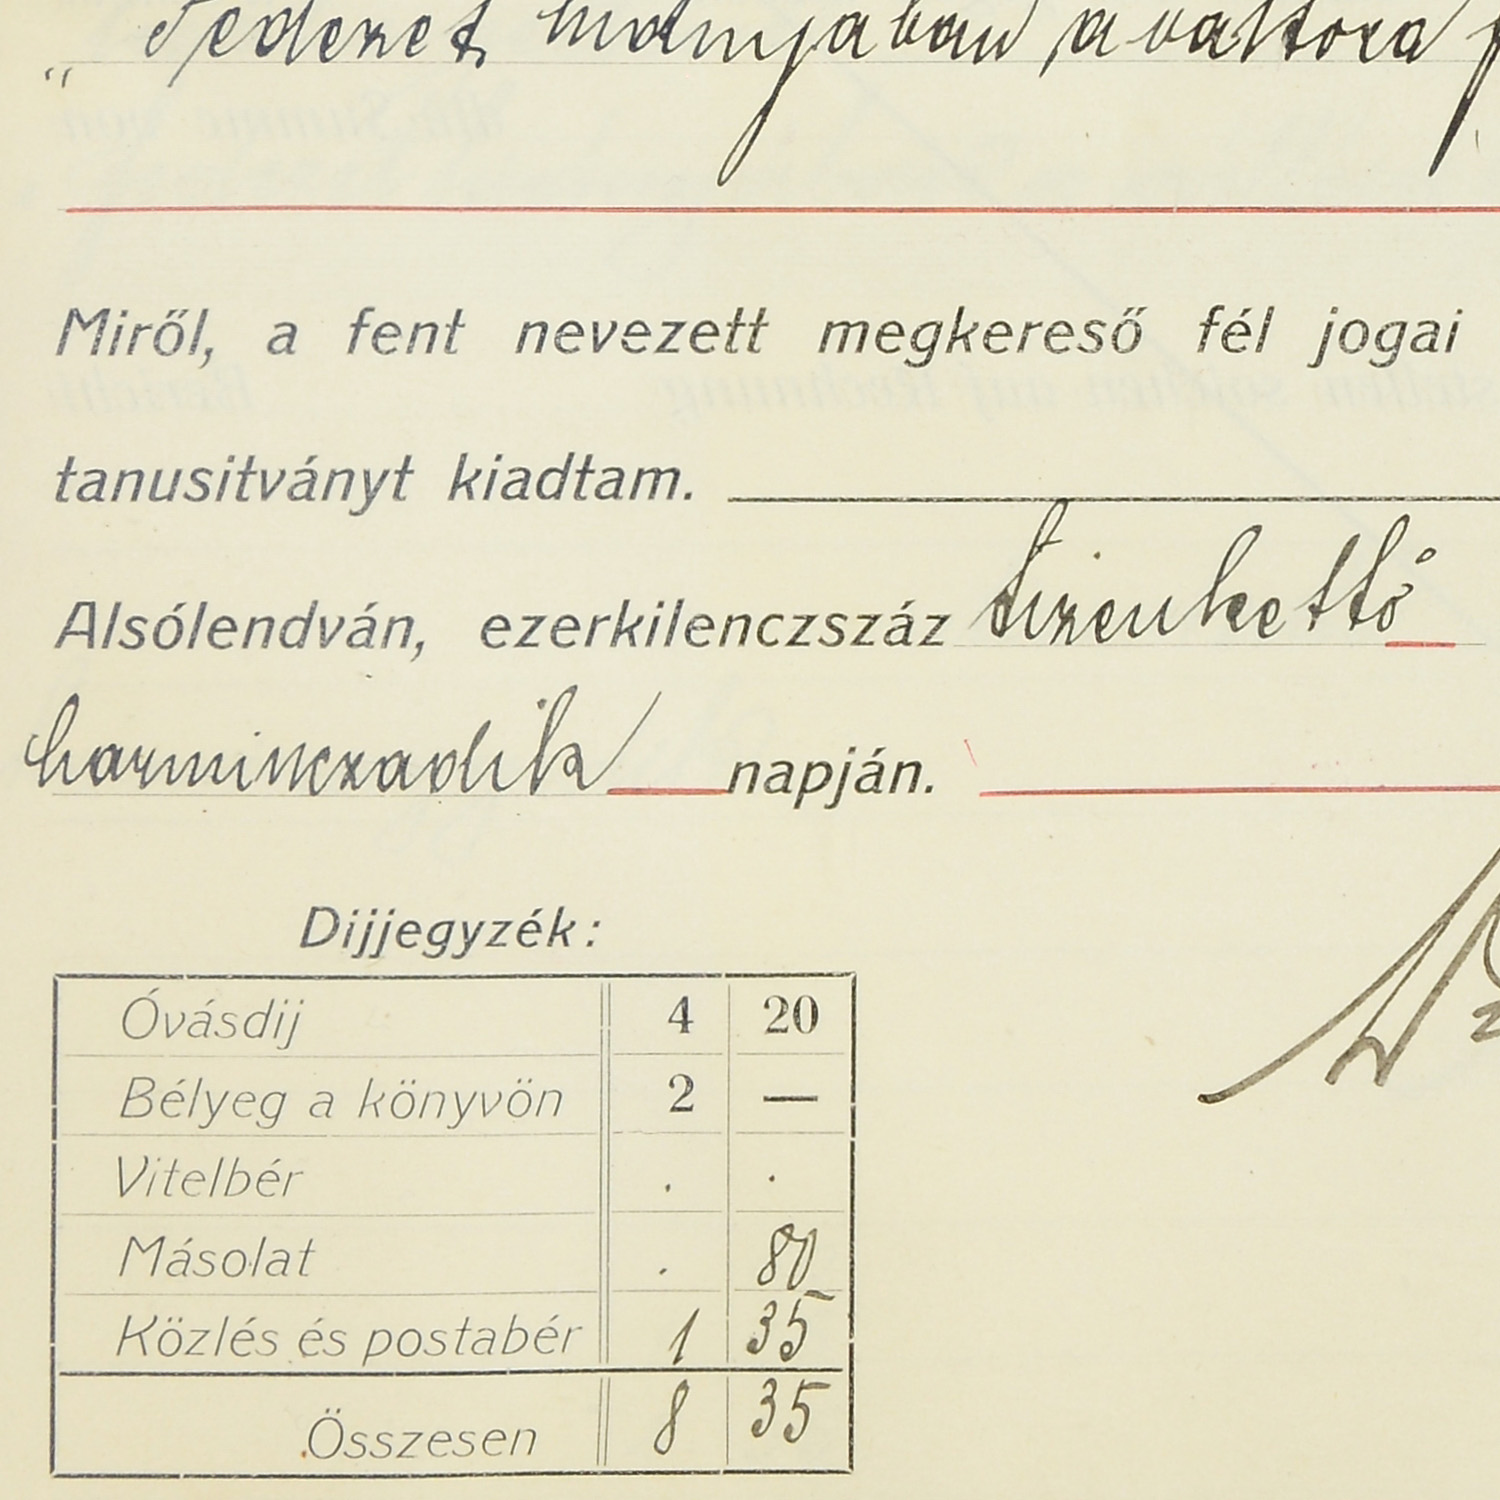 „ Fedezet hiányában a váltóra
Miről, a fent nevezett megkereső fél jogai
tanusitványt kiadtam.
Alsólendván, ezerkilenczszáz tizenkettő
harminczadik napján.
Dijjegyzék:
Óvásdij 4 20
Bélyeg a könyvön 2 —
Vitelbér . .
Másolat . 80
Közlés és postabér 1 35
Összesen 8 35